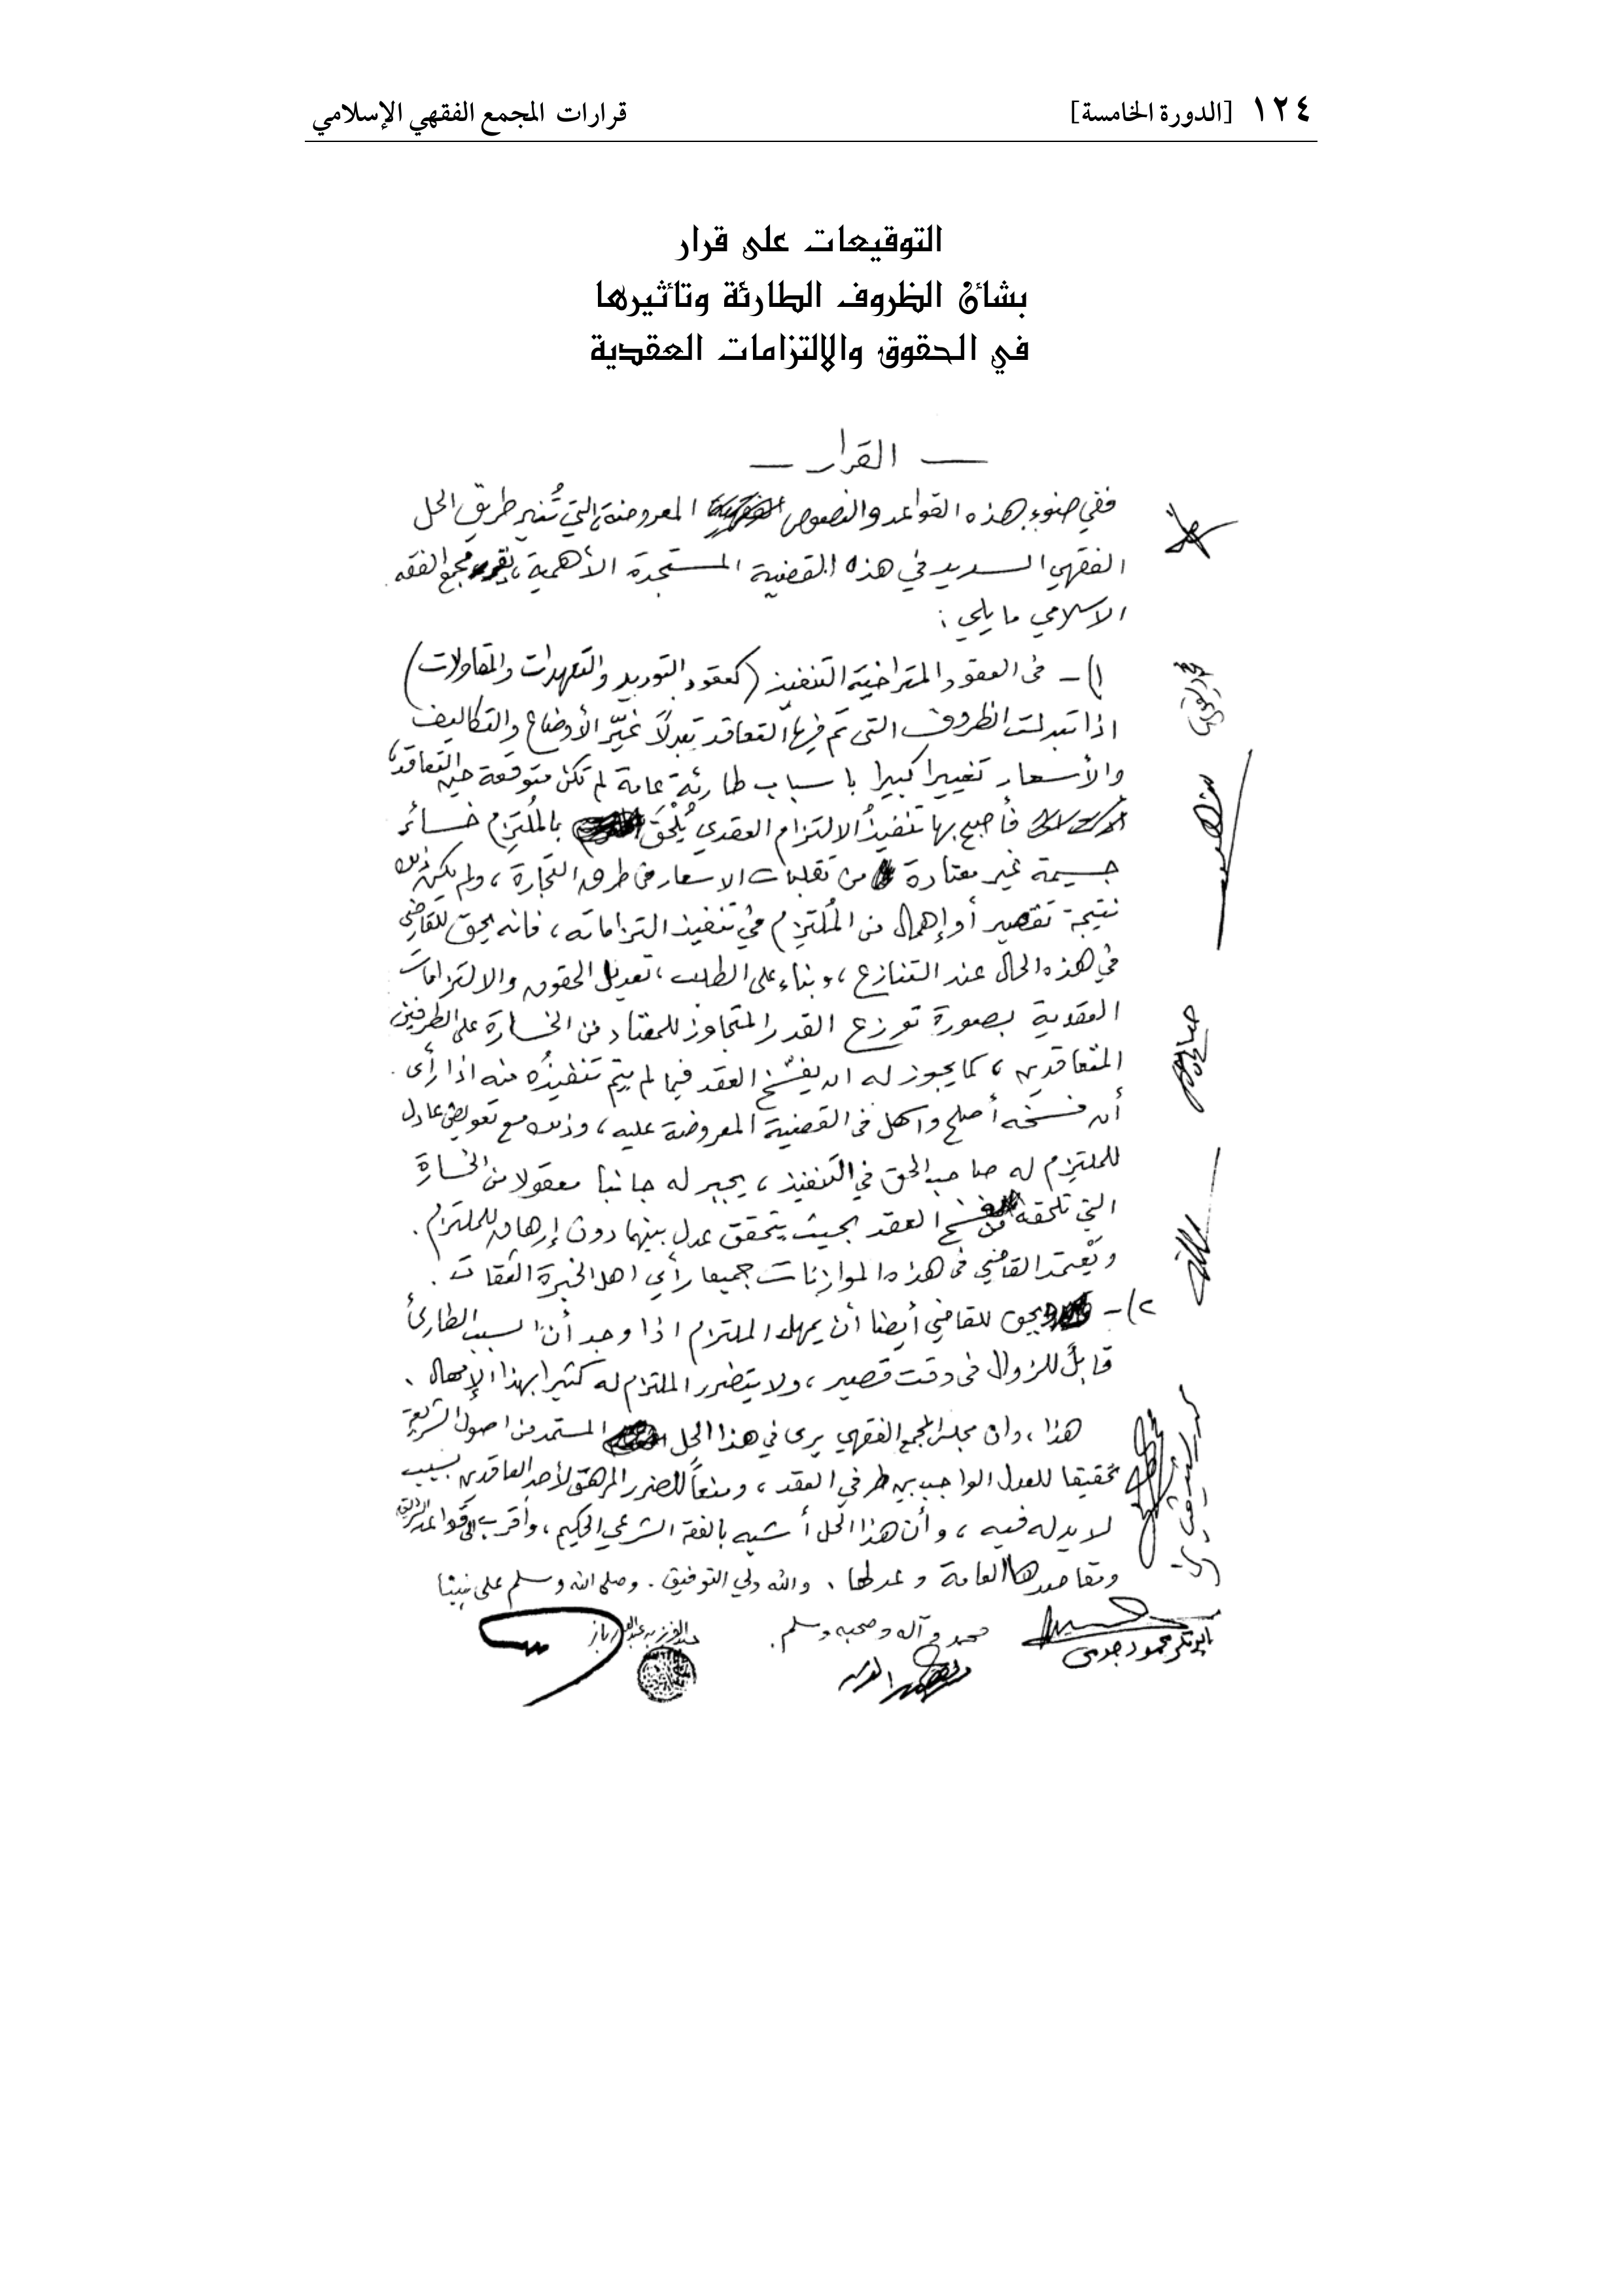 ١٢٤ [الدورة الخامسة] قرارات المجمع الفقهي الإسلامي
التوقيعات على قرار
بشأن الظروف الطارئة وتأثيرها
في الحقوق والالتزامات العقدية
— القرار —
ففي ضوء هذه القواعد والنصوص المعروضة، التي تُنير طريق الحل
الفقهي السديد في هذه القضية المستجدة الأهمية، يقرر مجمع الفقه
الاسلامي ما يلي :
١) - في العقود المتراخية التنفيذ (كعقود التوريد والتعهدات والمقاولات)
اذا تبدلت الظروف التي تم فيها التعاقد تبدلاً غيّر الأوضاع والتكاليف
والأسعار تغييرا كبيرا باسباب طارئة عامة لم تكن متوقعة حين التعاقد،
فأصبح بها تنفيذُ الالتزام العقدي يُلْحق بالمُلتزِم خسائر
جسيمة غير معتادة من تقلبات الاسعار في طرق التجارة، ولم يكن ذلك
نتيجة تقصير أو إهمال من المُلتزِم في تنفيذ التزاماته، فانه يحق للقاضي
في هذه الحال عند التنازع، وبناء على الطلب، تعديل الحقوق والالتزامات
العقدية بصورة توزع القدر المتجاوز للمعتاد من الخسارة على الطرفين
المتعاقدين، كما يجوز له ان يفسخ العقد فيما لم يتم تنفيذُه منه اذا رأى
أن فسخه أصلح واسهل في القضية المعروضة عليه، وذلك مع تعويض عادل
للملتزم له صاحب الحق في التنفيذ، يجبر له جانبا معقولا من الخسارة
التي تلحقه من فسخ العقد بحيث يتحقق عدل بينهما دون إرهاق للملتزم.
ويَعتمد القاضي في هذه الموازنات جميعا رأي اهل الخبرة الثقات .
٢) - ويحق للقاضي أيضا أن يمهل الملتزم اذا وجد أن السبب الطارئ
قابلٌ للزوال في وقت قصير، ولا يتضرر الملتزم له كثيرا بهذا الإمهال .
هذا، وان مجلس المجمع الفقهي يرى في هذا الحل المستمد من اصول الشريعة
تحقيقا للعدل الواجب بين طرفي العقد، ومنعاً للضرر المرهق لأحد العاقدين بسبب
لا يد له فيه، وأن هذا الحل أشبه بالفقه الشرعي الحكيم، وأقرب الى قواعد الشريعة
ومقاصدها العامة وعدلها . والله ولي التوفيق . وصلى الله وسلم على نبينا
محمد وآله وصحبه وسلم .
عبد العزيز بن عبد الله بن باز
ابوبكر محمود جومى